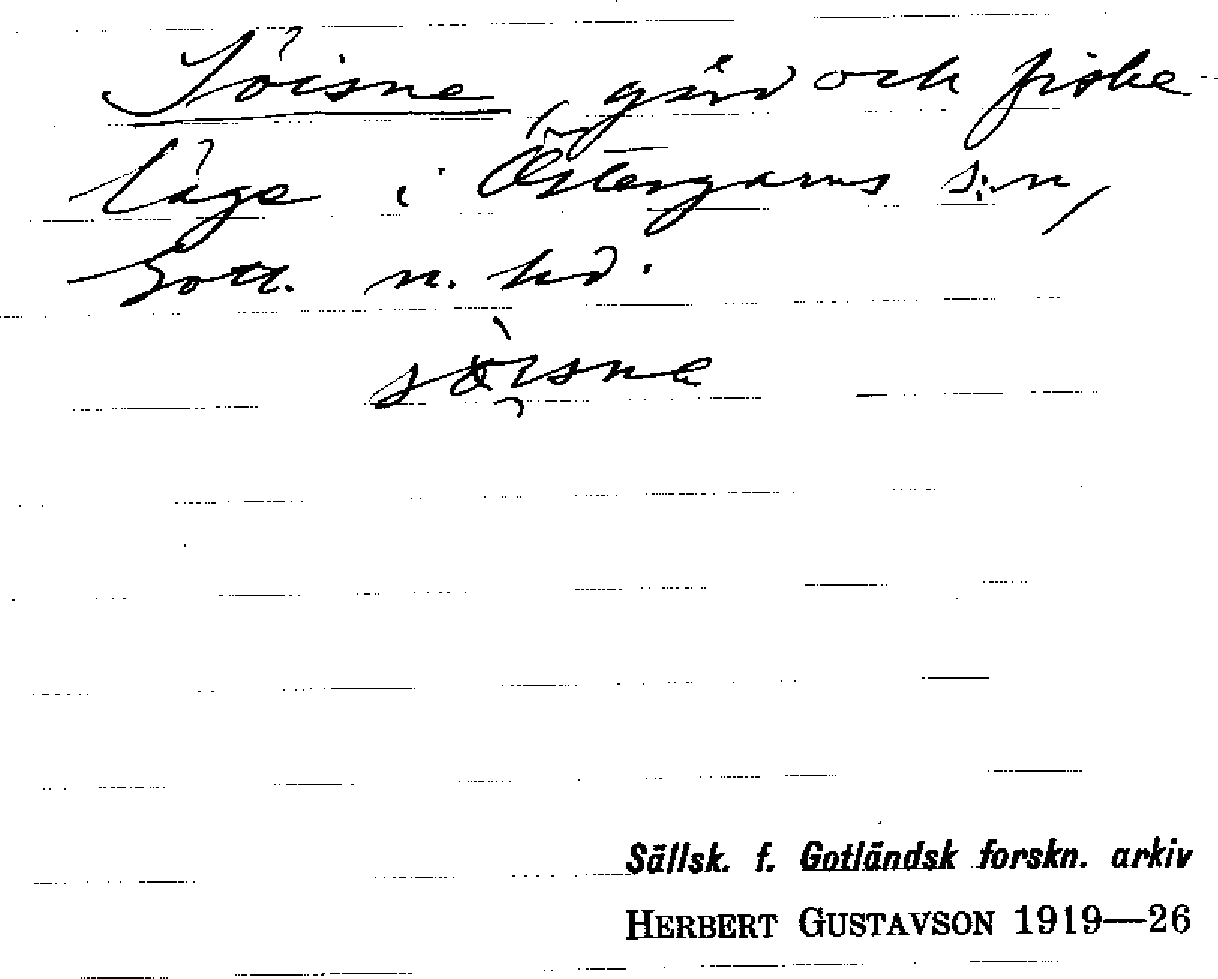 Söisne, gård och fiske-
läge i Östergarns s:n,
Gotl. n. hd.
Sällsk. f. Gotländsk forskn. arkiv
HERBERT GUSTAVSON 1919—26